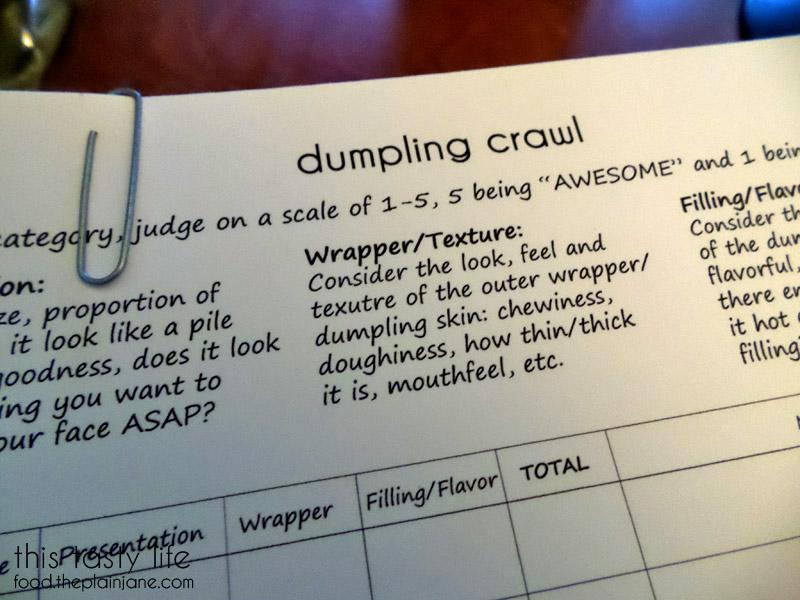 dumpling crawl
category, judge on a scale of 1-5, 5 being "AWESOME" and 1 bein
on:
ze, proportion of
it look like a pile
goodness, does it look
ing you want to
our face ASAP?
Wrapper/Texture:
Consider the look, feel and
texutre of the outer wrapper/
dumpling skin: chewiness,
doughiness, how thin/thick
it is, mouthfeel, etc.
Filling/Flavo
Consider th
of the dum
flavorful,
there en
it hot
filling
e Presentation Wrapper Filling/Flavor TOTAL
this tasty life
food.theplainjane.com